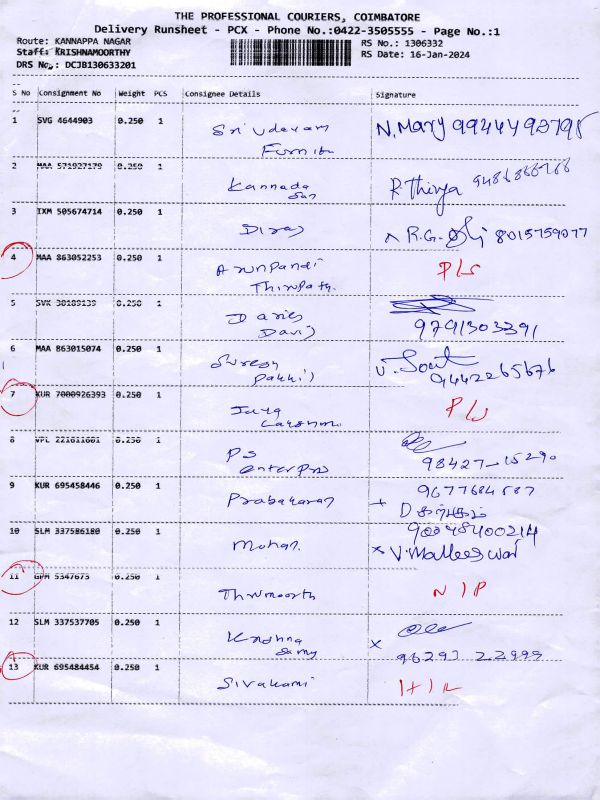 THE PROFESSIONAL COURIERS, COIMBATORE
Delivery Runsheet - PCX - Phone No.:0422-3505555 - Page No.:1
Route: KANNAPPA NAGAR RS No.: 1306332
Staff: KRISHNAMOORTHY RS Date: 16-Jan-2024
DRS No.: DCJB130633201
S No Consignment No Weight PCS Consignee Details Signature
1 SVG 4644903 0.250 1 Sri Udayam N. Mary
Furnitu
2 MAA 571927179 0.250 1 Kannada R. Thivya
3 IXM 505674714 0.250 1 Diraj R.G. 8015759077
4 MAA 863052253 0.250 1 Arunpandi P/S
Thirupath.
5 SVK 0.250 1 Daries
David 9791303391
6 MAA 863015074 0.250 1 Suresh
9442265676
7 KUR 7000926393 0.250 1 Jaya
Lakshmi
8 VPL 221611661 0.250 1 PS
Enterprs 98427-15290
9 KUR 695458446 0.250 1 Prabakaran
10 SLM 337586180 0.250 1 Mohan. 90048400214
V. Malleeswari
11 5347673 0.250 1 Thirumoorth N/P
12 SLM 337537705 0.250 1 Krishna
Samy 96293 22999
13 KUR 695484454 0.250 1 Sivakami